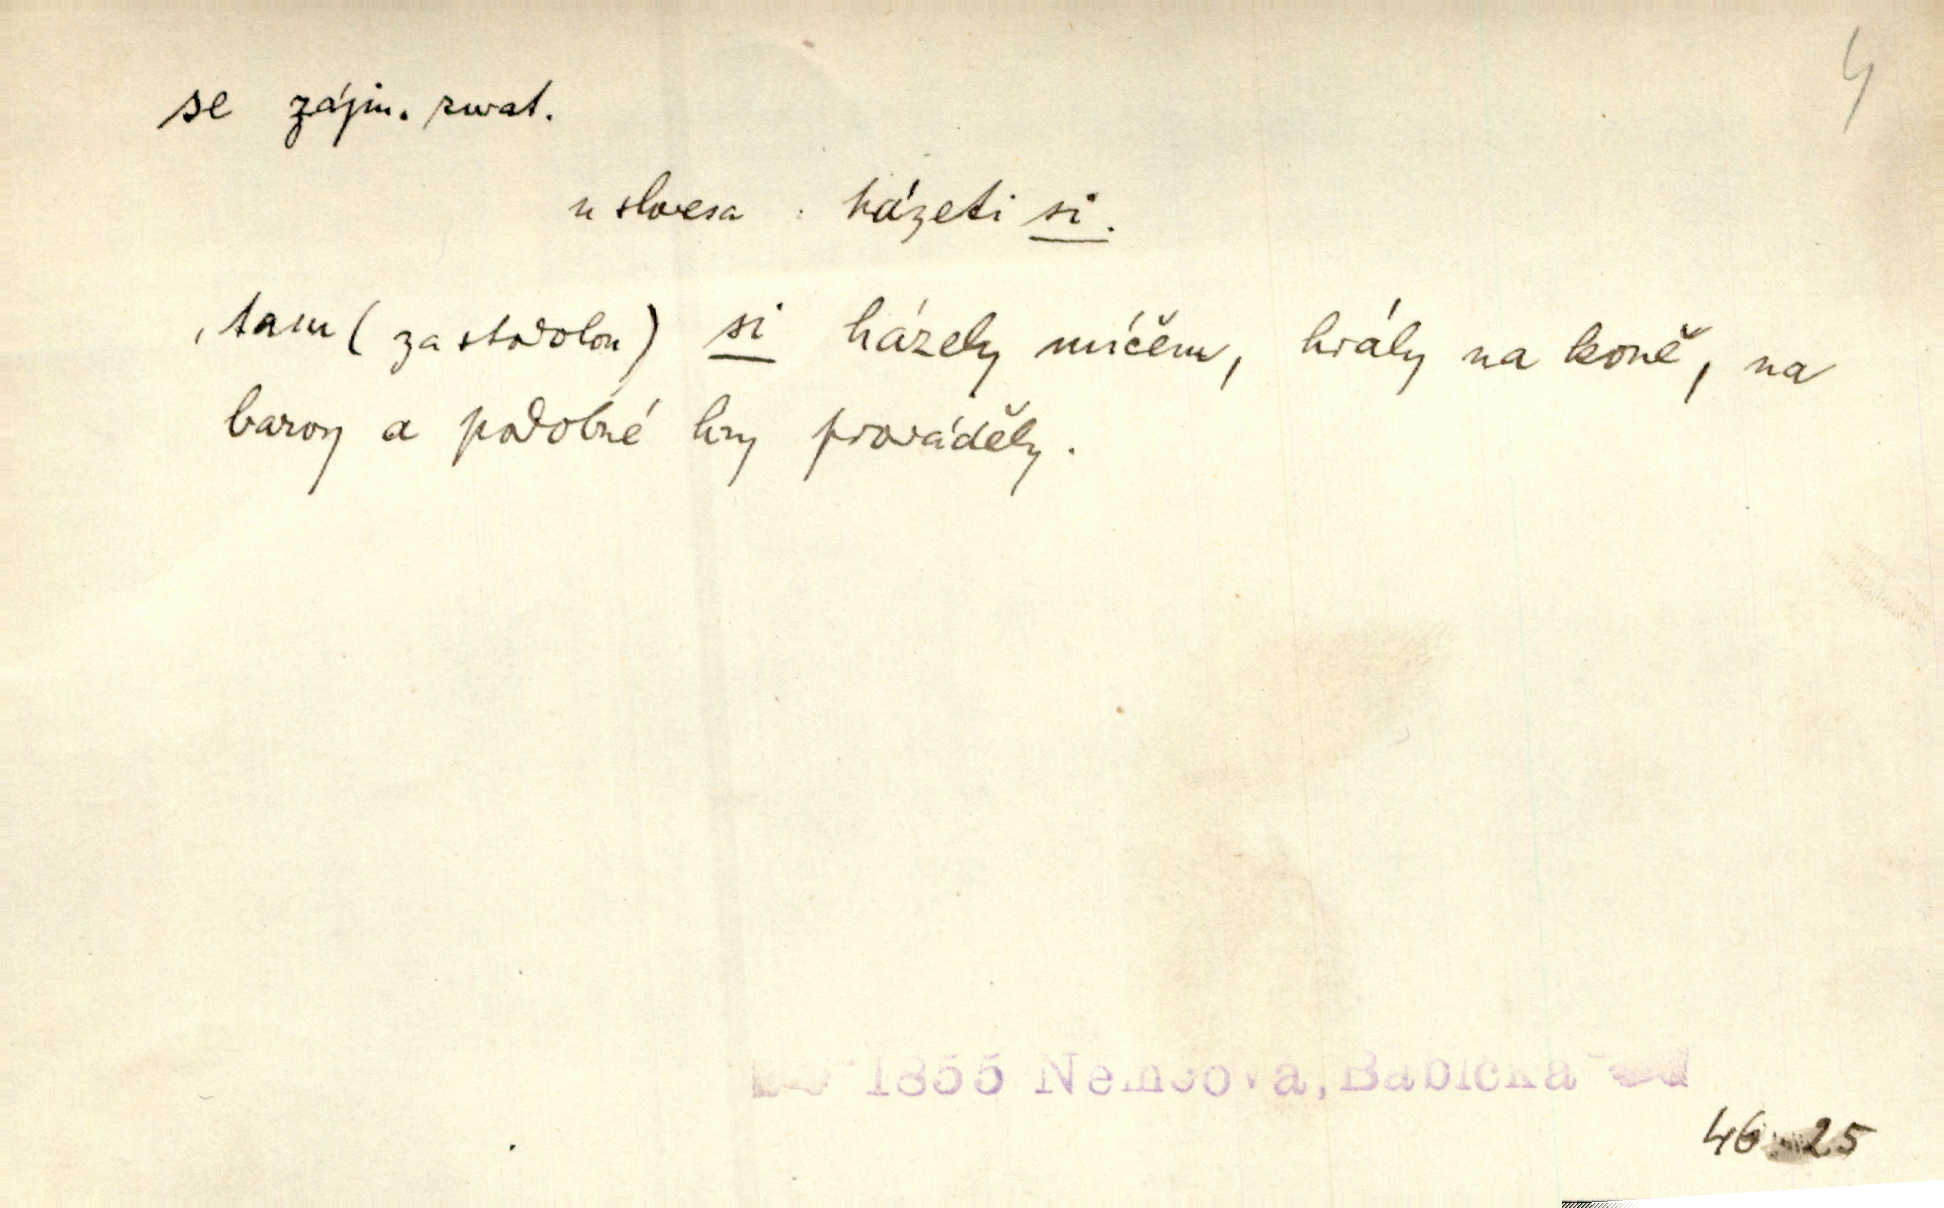 4
se zájm. zvrat.
u slovesa : házeti si.
, tam (za stodolou) si házely míčem, hrály na koně, na
barvy a podobné hry prováděly.
1855 Němcová, Babička
46 25